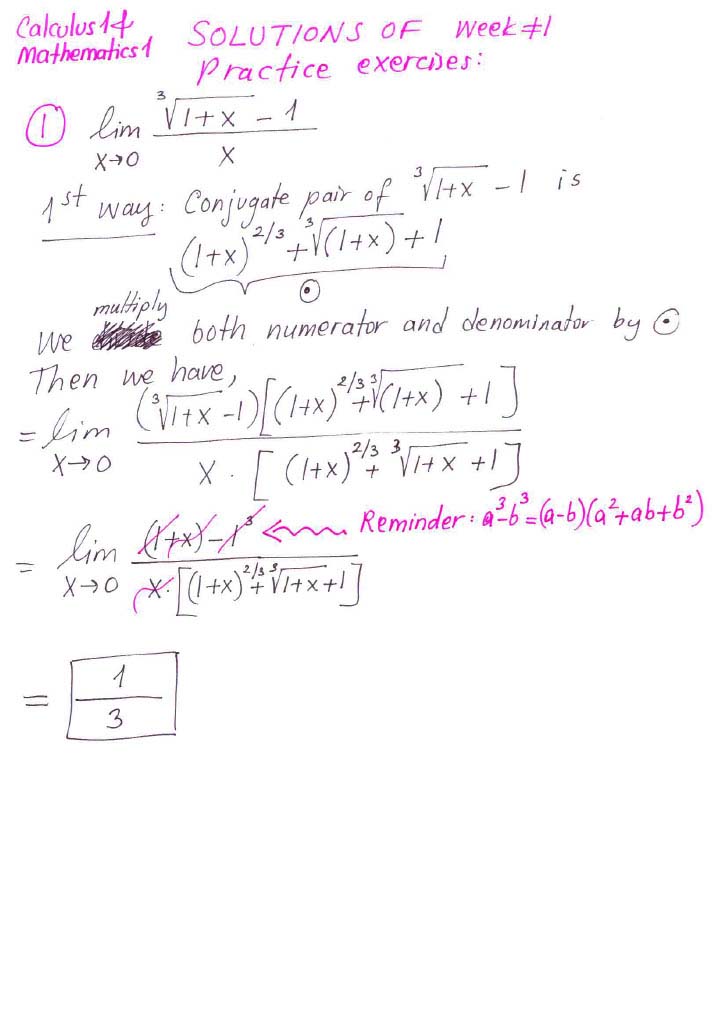 Calculus 1 &
Mathematics 1
SOLUTIONS OF Week #1
Practice exercises:
① lim x→0 (∛(1+x) - 1) / x
1st way: Conjugate pair of ∛(1+x) - 1 is
(1+x)^2/3 + ∛(1+x) + 1
⊙
We multiply both numerator and denominator by ⊙
Then we have,
= lim x→0 (∛(1+x) - 1)[(1+x)^2/3 + ∛(1+x) + 1] / x · [(1+x)^2/3 + ∛(1+x) + 1]
= lim x→0 (1+x) - 1³ / x · [(1+x)^2/3 + ∛(1+x) + 1] Reminder: a³-b³=(a-b)(a²+ab+b²)
= 1/3